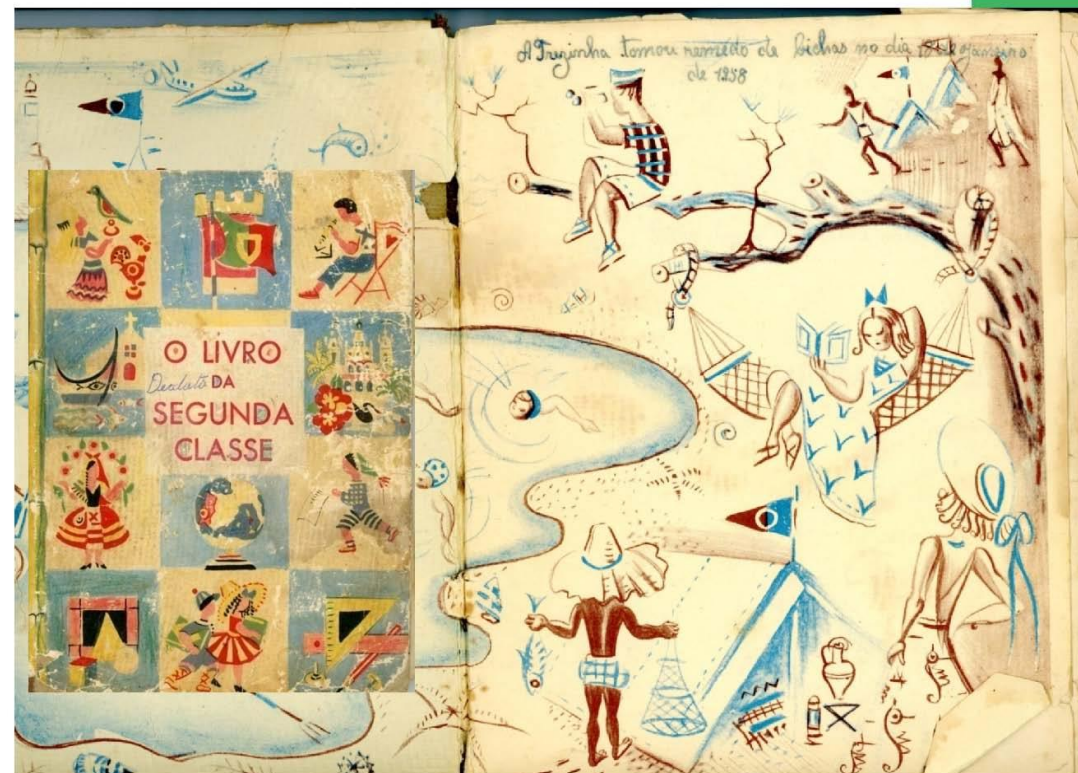 A Trezinha tomou remédio de bichas no dia de Janeiro
de 1958
O LIVRO
DA
SEGUNDA
CLASSE